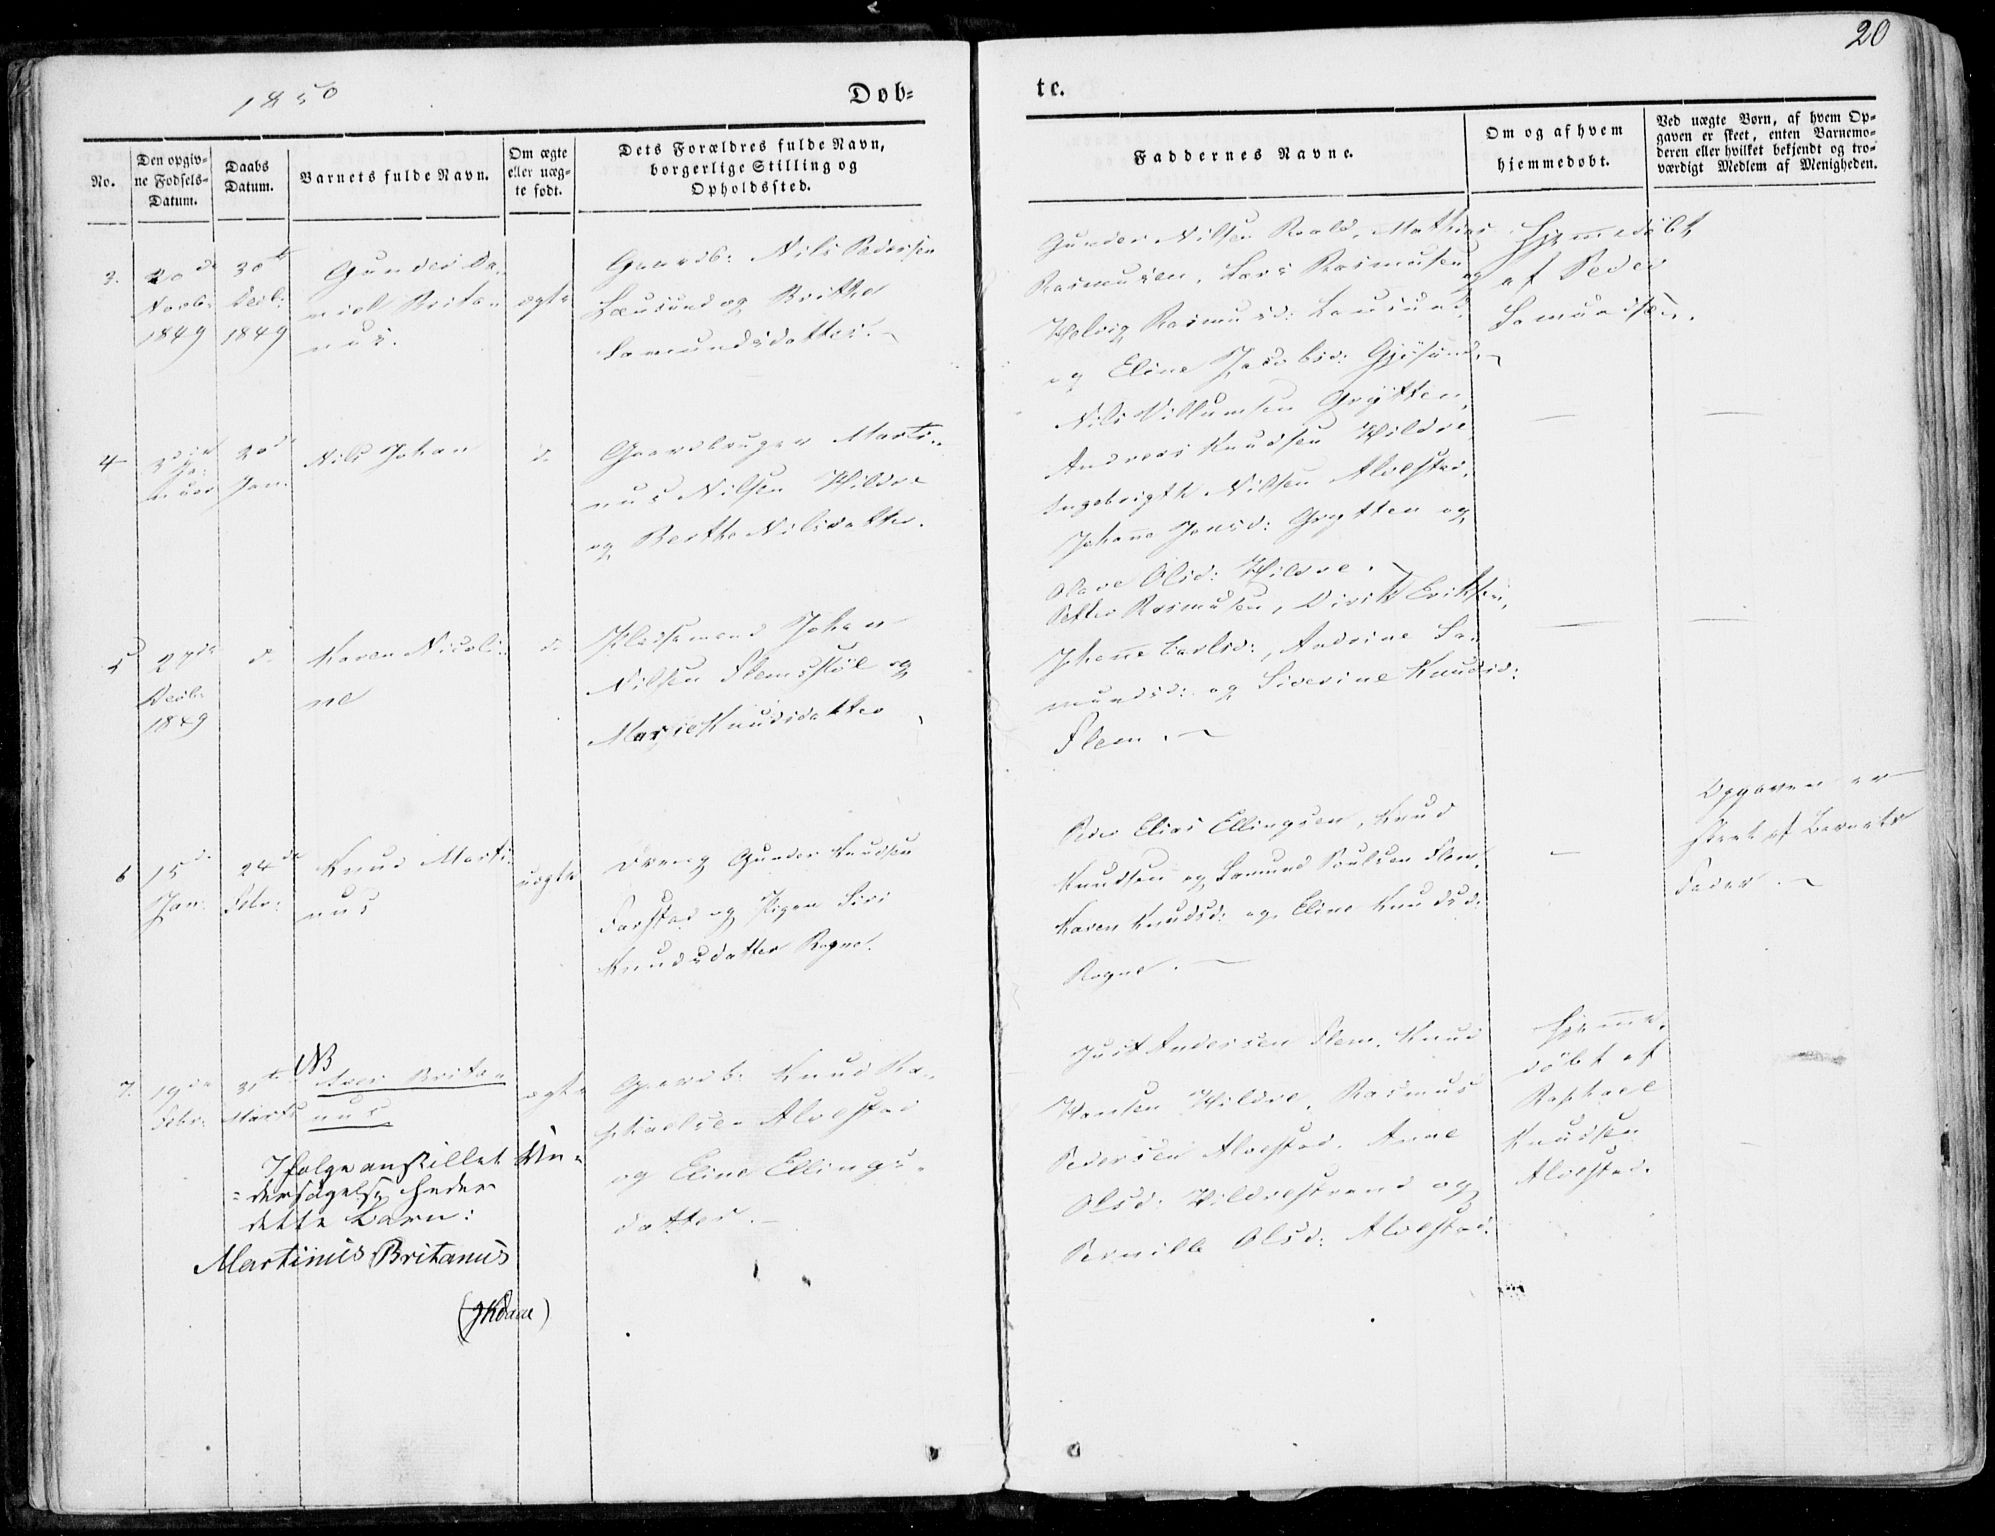 20
1850
Døb=
te.
No.
Den opgiv=
ne Fødsels=
Datum.
Daabs
Datum.
Barnets fulde Navn.
Om ægte
eller uæg=
te født.
Dets Forældres fulde Navn,
borgerlige Stilling og
Opholdssted.
Faddernes Navne.
Om og af hvem
hjemmedøbt.
Ved uægte Børn, af hvem Op=
gaven er skeet, enten Barnemo=
deren eller hvilket bekjendt og tro=
værdigt Medlem af Menigheden.
3.
20de
Novb:
1849
30te
Decb:
1849
Gunder Da-
niel Brita-
nus.
ægte
Gaardb: Nils Pedersen
Lausund og Brithe
Samundsdatter.
Gunder Nilsen Roald, Mathias
Rasmusen, Lars Rasmusen
Helvig Rasmusd: Lausund,
og Eline Jacobsd: Gjøsund.
Hjemmedøbt
af Peder
Samundsen.
4
3die
Ja-
nuar
20de
Jan.
Nils Johan
d.
Gaardbruger Marti-
nus Nilsen Hildre
og Berthe Nilsdatter.
Nils Villumsen Grytten,
Andreas Knudsen Hildre,
Ingebrigth Nilsen Alvestad,
Johanne Jensd: Grytten og
Olave Olsd: Hildre.
5
2den
Decb:
1849
d.
Karen Nicoli-
ne
d.
Pladsmand Johan
Nilsen Flemstøl og
Marie Knudsdatter
Petter Rasmusen, Divrik Eriksen,
Johanne Carlsd:, Andrine Sa-
mundsd: og Siverine Knudsd:
Flem.
6
15de
Jan.
24de
Febr:
Knud Marti-
nus
uægte
Dreng Gunder Knudsen
Farstad og Pigen Siri
Knudsdatter Rogne.
Peder Elias Ellingsen, Knud
Knudsen og Samund Poulsen Flem,
Karen Knudsd: og Eline Knudsd:
Rogne.
Opgaven er
skeet af Barnets
Fader.
7.
19de
Febr.
31te
Marts
NB
Aver Brita-
nus
Ifølge anstillet Un-
=dersøgelse heder
dette Barn:
Martinus Britanus
ægte
Gaardb: Knud Ra-
phaelsen Alvestad
og Eline Ellings-
datter.
Just Andersen Flem, Knud
Hansen Hildre, Rasmus
Pedersen Alvestad, Anne
Olsd: Hildrestrand og
Pernille Olsd: Alvestad.
Hjemme-
døbt af
Raphael
Knudsen
Alvestad.